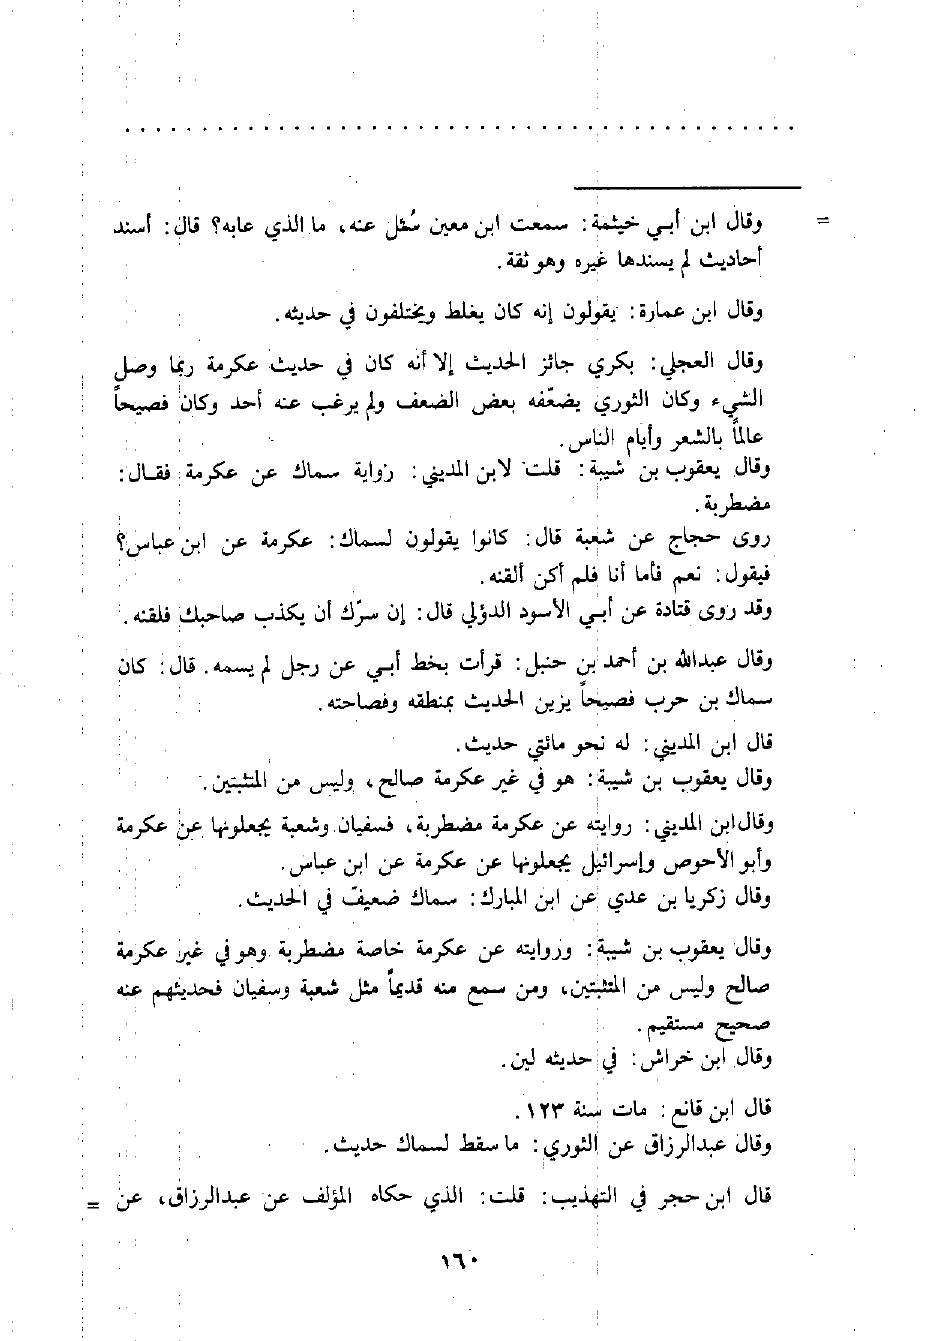 . . . . . . . . . . . . . . . . . . . . . . . . . . . . . . . . . . . . . . . . . . .
= وقال ابن أبي خيثمة: سمعت ابن معين سُئل عنه، ما الذي عابه؟ قال: أسند
أحاديث لم يسندها غيره وهو ثقة.
وقال ابن عمارة: يقولون إنه كان يغلط ويختلفون في حديثه.
وقال العجلي: بكري جائز الحديث إلا أنه كان في حديث عكرمة ربما وصل
الشيء وكان الثوري يضعّفه بعض الضعف ولم يرغب عنه أحد وكان فصيحاً
عالماً بالشعر وأيام الناس.
وقال يعقوب بن شيبة: قلت لابن المديني: رواية سماك عن عكرمة فقال:
مضطربة.
روى حجاج عن شعبة قال: كانوا يقولون لسماك: عكرمة عن ابن عباس؟
فيقول: نعم فأما أنا فلم أكن ألقنه.
وقد روى قتادة عن أبي الأسود الدؤلي قال: إن سرّك أن يكذب صاحبك فلقنه.
وقال عبدالله بن أحمد بن حنبل: قرأت بخط أبي عن رجل لم يسمه. قال: كان
سماك بن حرب فصيحاً يزين الحديث بمنطقه وفصاحته.
قال ابن المديني: له نحو مائتي حديث.
وقال يعقوب بن شيبة: هو في غير عكرمة صالح، وليس من المثبتين.
وقال ابن المديني: روايته عن عكرمة مضطربة، فسفيان وشعبة يجعلونها عن عكرمة
وأبو الأحوص وإسرائيل يجعلونها عن عكرمة عن ابن عباس.
وقال زكريا بن عدي عن ابن المبارك: سماك ضعيف في الحديث.
وقال يعقوب بن شيبة: وروايته عن عكرمة خاصة مضطربة وهو في غير عكرمة
صالح وليس من المتثبتين، ومن سمع منه قديماً مثل شعبة وسفيان فحديثهم عنه
صحيح مستقيم.
وقال ابن خراش: في حديثه لين.
قال ابن قانع: مات سنة ١٢٣.
وقال عبدالرزاق عن الثوري: ما سقط لسماك حديث.
قال ابن حجر في التهذيب: قلت: الذي حكاه المؤلف عن عبدالرزاق، عن =
١٦٠